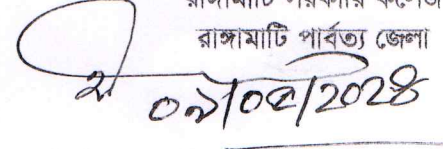 রাঙ্গামাটি সরকারি কলেজ
রাঙ্গামাটি পার্বত্য জেলা
০৯/০৫/2024